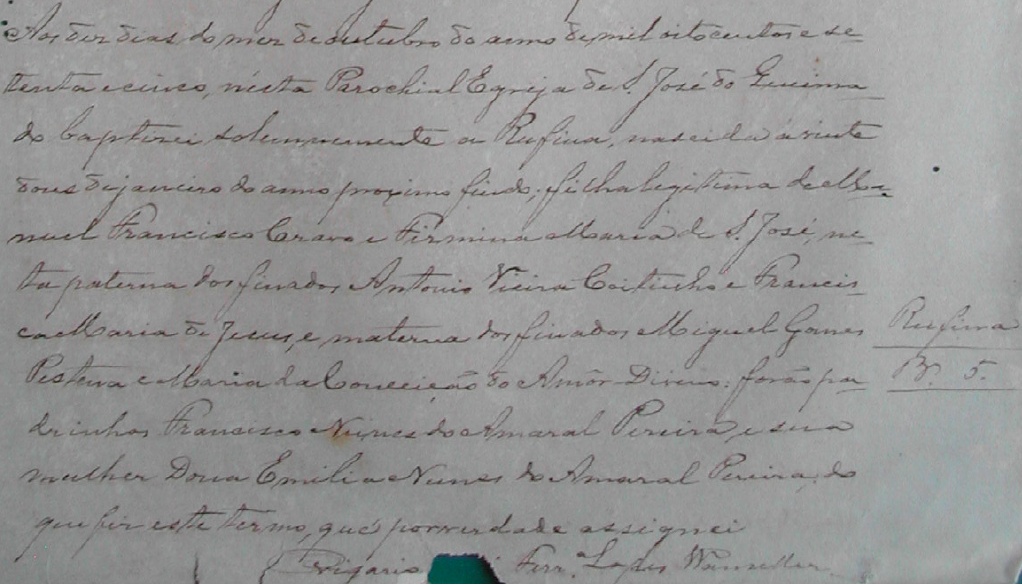 Aos dez dias do mez de outubro do anno de mil oitocentos e se-
tenta e cinco, nésta Parochial Egreja de S. José do Queima-
do baptizei solemnemente a Rufina, nascida á vinte
dous de janeiro do anno proximo findo; filha legitima de Ma-
nuel Francisco Cravo e Firmina Maria de S. José, ne-
ta paterna dos finados Antonio Vieira Coitinho e Francis-
ca Maria de Jesus, e materna dos finados Miguel Gomes
Rufina
Pestana e Maria da Conceição do Amôr Divino: forão pa-
N. 5.
drinhos Francisco Nunes do Amaral Pereira, e sua
mulher Dona Emilia Nunes do Amaral Pereira, do
que fiz este termo, que por verdade assignei
Vigario Ferr.ª Lopes Wanzeller